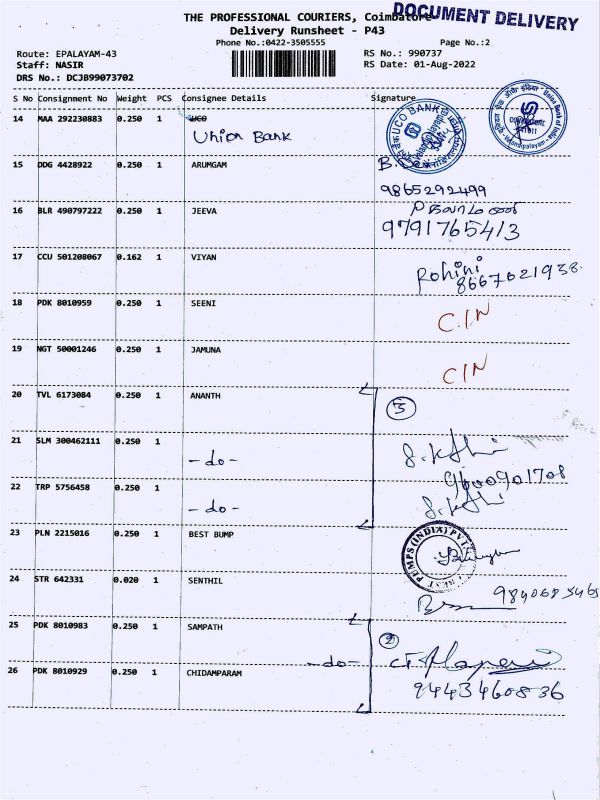 THE PROFESSIONAL COURIERS, Coimbatore
DOCUMENT DELIVERY
Delivery Runsheet - P43
Phone No.:0422-3505555
Page No.:2
Route: EPALAYAM-43
RS No.: 990737
Staff: NASIR
RS Date: 01-Aug-2022
DRS No.: DCJB99073702
S No Consignment No Weight PCS Consignee Details Signature
14 MAA 292230883 0.250 1 UCO
Union Bank
UCO BANK
Union Bank of India
15 DDG 4428922 0.250 1 ARUMGAM
9865292499
16 BLR 490797222 0.250 1 JEEVA
9791765413
17 CCU 501208067 0.162 1 VIYAN
Rohini
8667021938
18 PDK 8010959 0.250 1 SEENI
C.I.N
19 NGT 50001246 0.250 1 JAMUNA
CIN
20 TVL 6173084 0.250 1 ANANTH
3
21 SLM 300462111 0.250 1
-do-
9600901708
22 TRP 5756458 0.250 1
-do-
23 PLN 2215016 0.250 1 BEST BUMP
PUMPS (INDIA) PVT
24 STR 642331 0.020 1 SENTHIL
25 PDK 8010983 0.250 1 SAMPATH
2
-do-
26 PDK 8010929 0.250 1 CHIDAMPARAM
9443460836